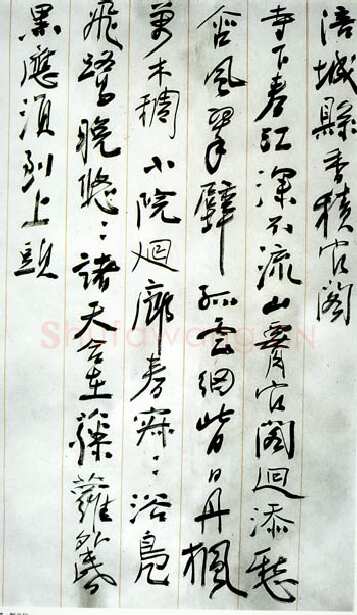 涪城縣香積官閣
寺下春江深不流山腰官閣迴添愁
含風翠壁孤雲細背日丹楓
萬木稠小院迴廊春寂〻浴鳧
飛鷺晚悠〻諸天合在藤蘿外昏
黑應須到上頭